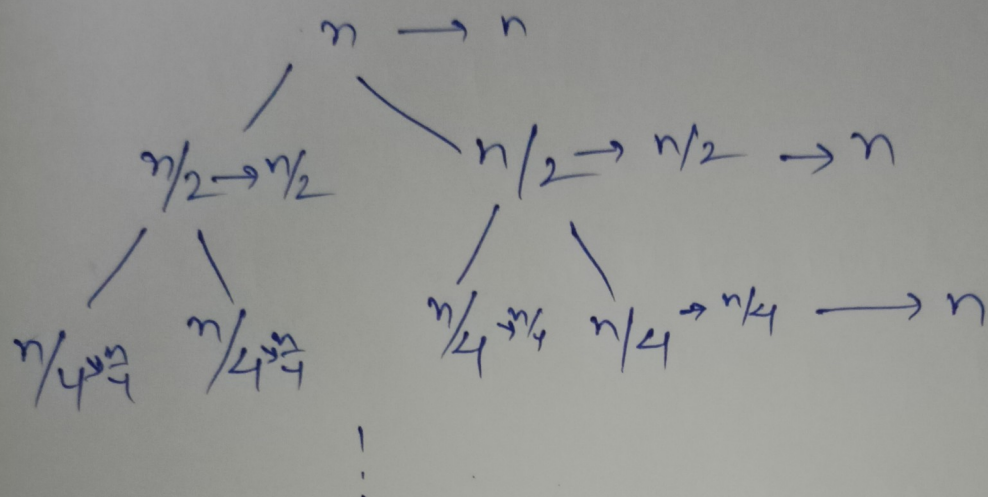 n → n
n/2 → n/2 n/2 → n/2 → n
n/4 → n/4 n/4 → n/4 n/4 → n/4 n/4 → n/4 → n